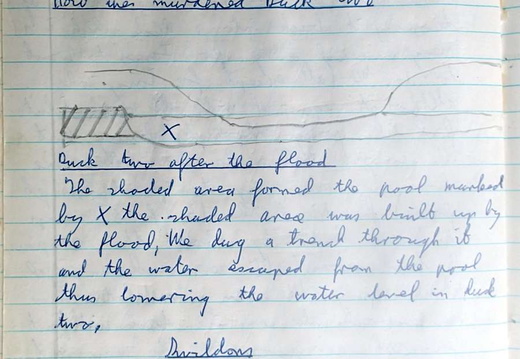 How we murdered Duck two
X
Duck two after the flood
The shaded area formed the pool marked
by X the shaded area was built up by
the flood, We dug a trench through it
and the water escaped from the pool
thus lowering the water level in duck
two,